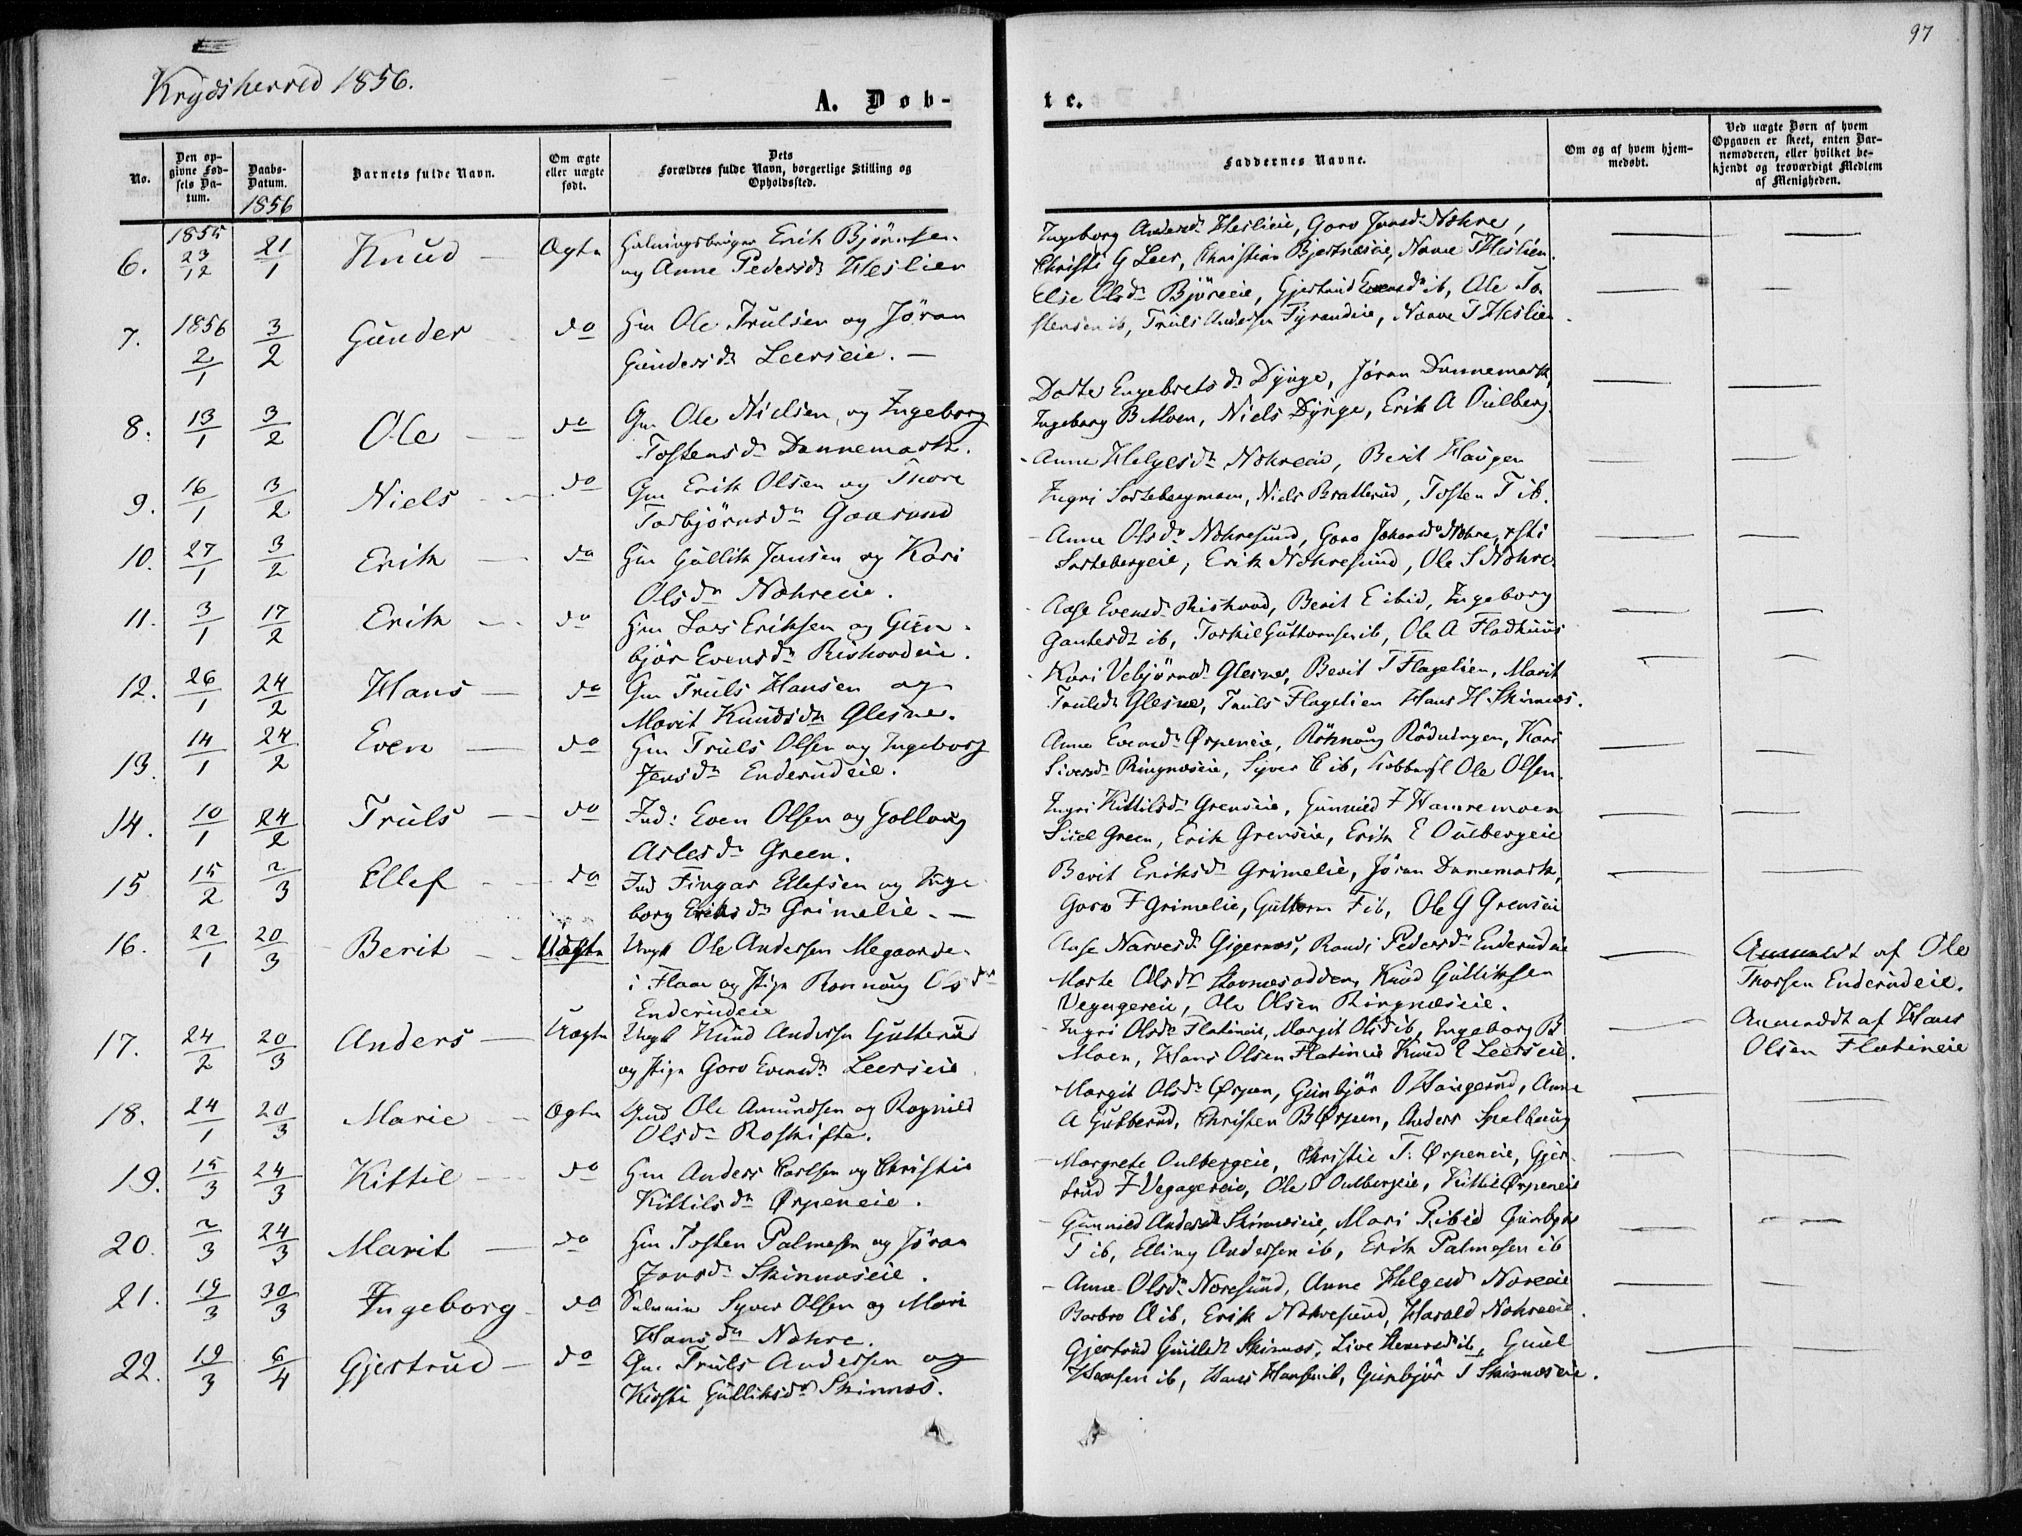 97
Krydsherred 1856.
A. Døb-
te.
No.
Den op-
givne Fød-
sels Da-
tum.
Daabs-
Datum.
1856
Barnets fulde Navn.
Om ægte
eller uægte
født.
Dets
Forældres fulde Navn, borgerlige Stilling og
Opholdssted.
Faddernes Navne.
Om og af hvem hjem-
medøbt.
Ved uægte Børn af hvem
Opgaven er skeet, enten Bar-
nemoderen, eller hvilket be-
kjendt og troværdigt Medlem
af Menigheden.
6. 1855 23/12 21/1 Knud Ægte Erik Bjørnsen
og Anne Pedersdr Heslien
Ingeborg Andersdr Heslieie, Goro Jonsdr Nohre,
Christi G Leer, Christian Bjertnæseie, Narve T Heslien.
7. 1856 2/1 3/2 Gunder do Hm Ole Trulsen og Jøran
Gundersdr Leerseie.
Else Olsdr Bjøreeie, Gjertrud Evensdr ib, Ole To-
stensen ib, Truls Andersen, Narve T Heslien.
8. 13/1 3/2 Ole do Gm Ole Nielsen og Ingeborg
Tostensdr Dannemark.
Dorte Engebretsdr Dynge, Jøran Dannemark,
Ingeborg B Moen, Niels Dynge, Erik A Oulberg.
9. 16/1 3/2 Niels do Gm Erik Olsen og Thore
Torbjørnsdr Gaarund
Anne Helgesdr Nohreeie, Berit Haugen
Ingri Sorteberg, Niels Bratterud, Tosten T ib.
10. 27/1 3/2 Erik do Hm Gullik Jansen og Kari
Olsdr Nohreeie.
Anne Olsdr Nohresund, Goro Nohre,
Sortebergeie, Erik Nohresund, Ole S Nohre
11. 3/1 17/2 Erik do Hm Lars Eriksen og Gun-
bjør Evensdr Riskovdeie.
Aase Evensdr Riskovd, Berit E ibid, Ingeborg
ib, Torkil Guttormsen ib, Ole A Fladhuus
12. 26/1 24/2 Hans do Gm Truls Hansen og
Marit Knudsdr Glesne.
Kari Vebjørnsdr Glesne, Berit T Flagelien, Marit
Trulsdr Glesne, Truls Flagelien Hans H. Skinnæs.
13. 14/1 24/2 Even do Hm Truls Olsen og Ingeborg
Jensdr Enderudeie.
Anne Evensdr Ørpeneie, Rønnaug Rødningen, Kari
Siversdr Ringnæseie, Syver E ib, Ole Olsen.
14. 10/1 24/2 Truls do Ind: Even Olsen og Gollaug
Aslesdr Green.
Ingri Kittilsdr Grenseie, Gunnild F Hamremoen
Siul Green, Erik Grenseie, Erik E Oulbergeie
15 15/2 2/3 Ellef do Ind Fingar Ellefsen og Inge-
borg Eriksdr Grimelie.
Berit Eriksdr Grimelie, Jøran Dannemark,
Goro F Grimelie, Guttorm F ib, Ole G Grenseie
16. 22/1 20/3 Berit Uægte Ungk Ole Andersen Megaarde-
i Flaae og Pige Rønnaug Olsdr
Enderudeie
Aase Narvesdr Gigernæs, Randi Pedersdr Enderudeie
Marte Olsdr Stavnæsodden, Knud Gulliksen
Vegagereie, Ole Olsen Ringnæseie.
Anmeldt af Ole
Thorsen Enderudeie.
17. 24/2 20/3 Anders Uægte Ungk Knud Andersen Gutterud
og Pige Goro Evensdr Leerseie
Ingri Olsdr Flatineie, Margit Olsdr ib, Ingeborg B
Moen, Hans Olsen Flatineie Knud E Leerseie.
Anmeldt af Hans
Olsen Flatineie
18. 24/1 20/3 Marie Ægte Gmd Ole Amundsen og Ragnild
Olsdr Roskifte.
Margit Olsdr Ørpen, Gunbjør O Haugerud, Anne
A Gutterud, Christen B Ørpen, Anders Spelhaug
19. 15/3 24/3 Kittil do Hm Anders Carlsen og Christie
Kittilsdr Ørpeneie.
Margrete Oulbergeie, Christie T: Ørpeneie, Gjer-
trud F Vegagereie, Ole O Oulbergeie, Kittil Ørpeneie
20. 2/3 24/3 Marit do Hm Tosten Palmesen og Jøran
Jonsdr Skinnæseie.
Gunnild Andersdr Skinnæseie, Mari P ibid Gunbjør
T ib, Elling Andersen ib, Erik Palmesen ib
21. 19/3 30/3 Ingeborg do Syver Olsen og Mari
Hansdr Nohre.
Anne Olsdr Noresund, Anne Helgesdr Noreeie
Barbro A ib, Erik Nohresund, Harald Nohreeie.
22. 19/3 6/4 Gjertrud do Gm Truls Andersen og
Kirsti Gulliksdr Skinnæs.
Gjertrud Skinnæs, Live ib, Guul
Hansen ib, Hans Hansen ib, Gunbjør T Skinnæseie.